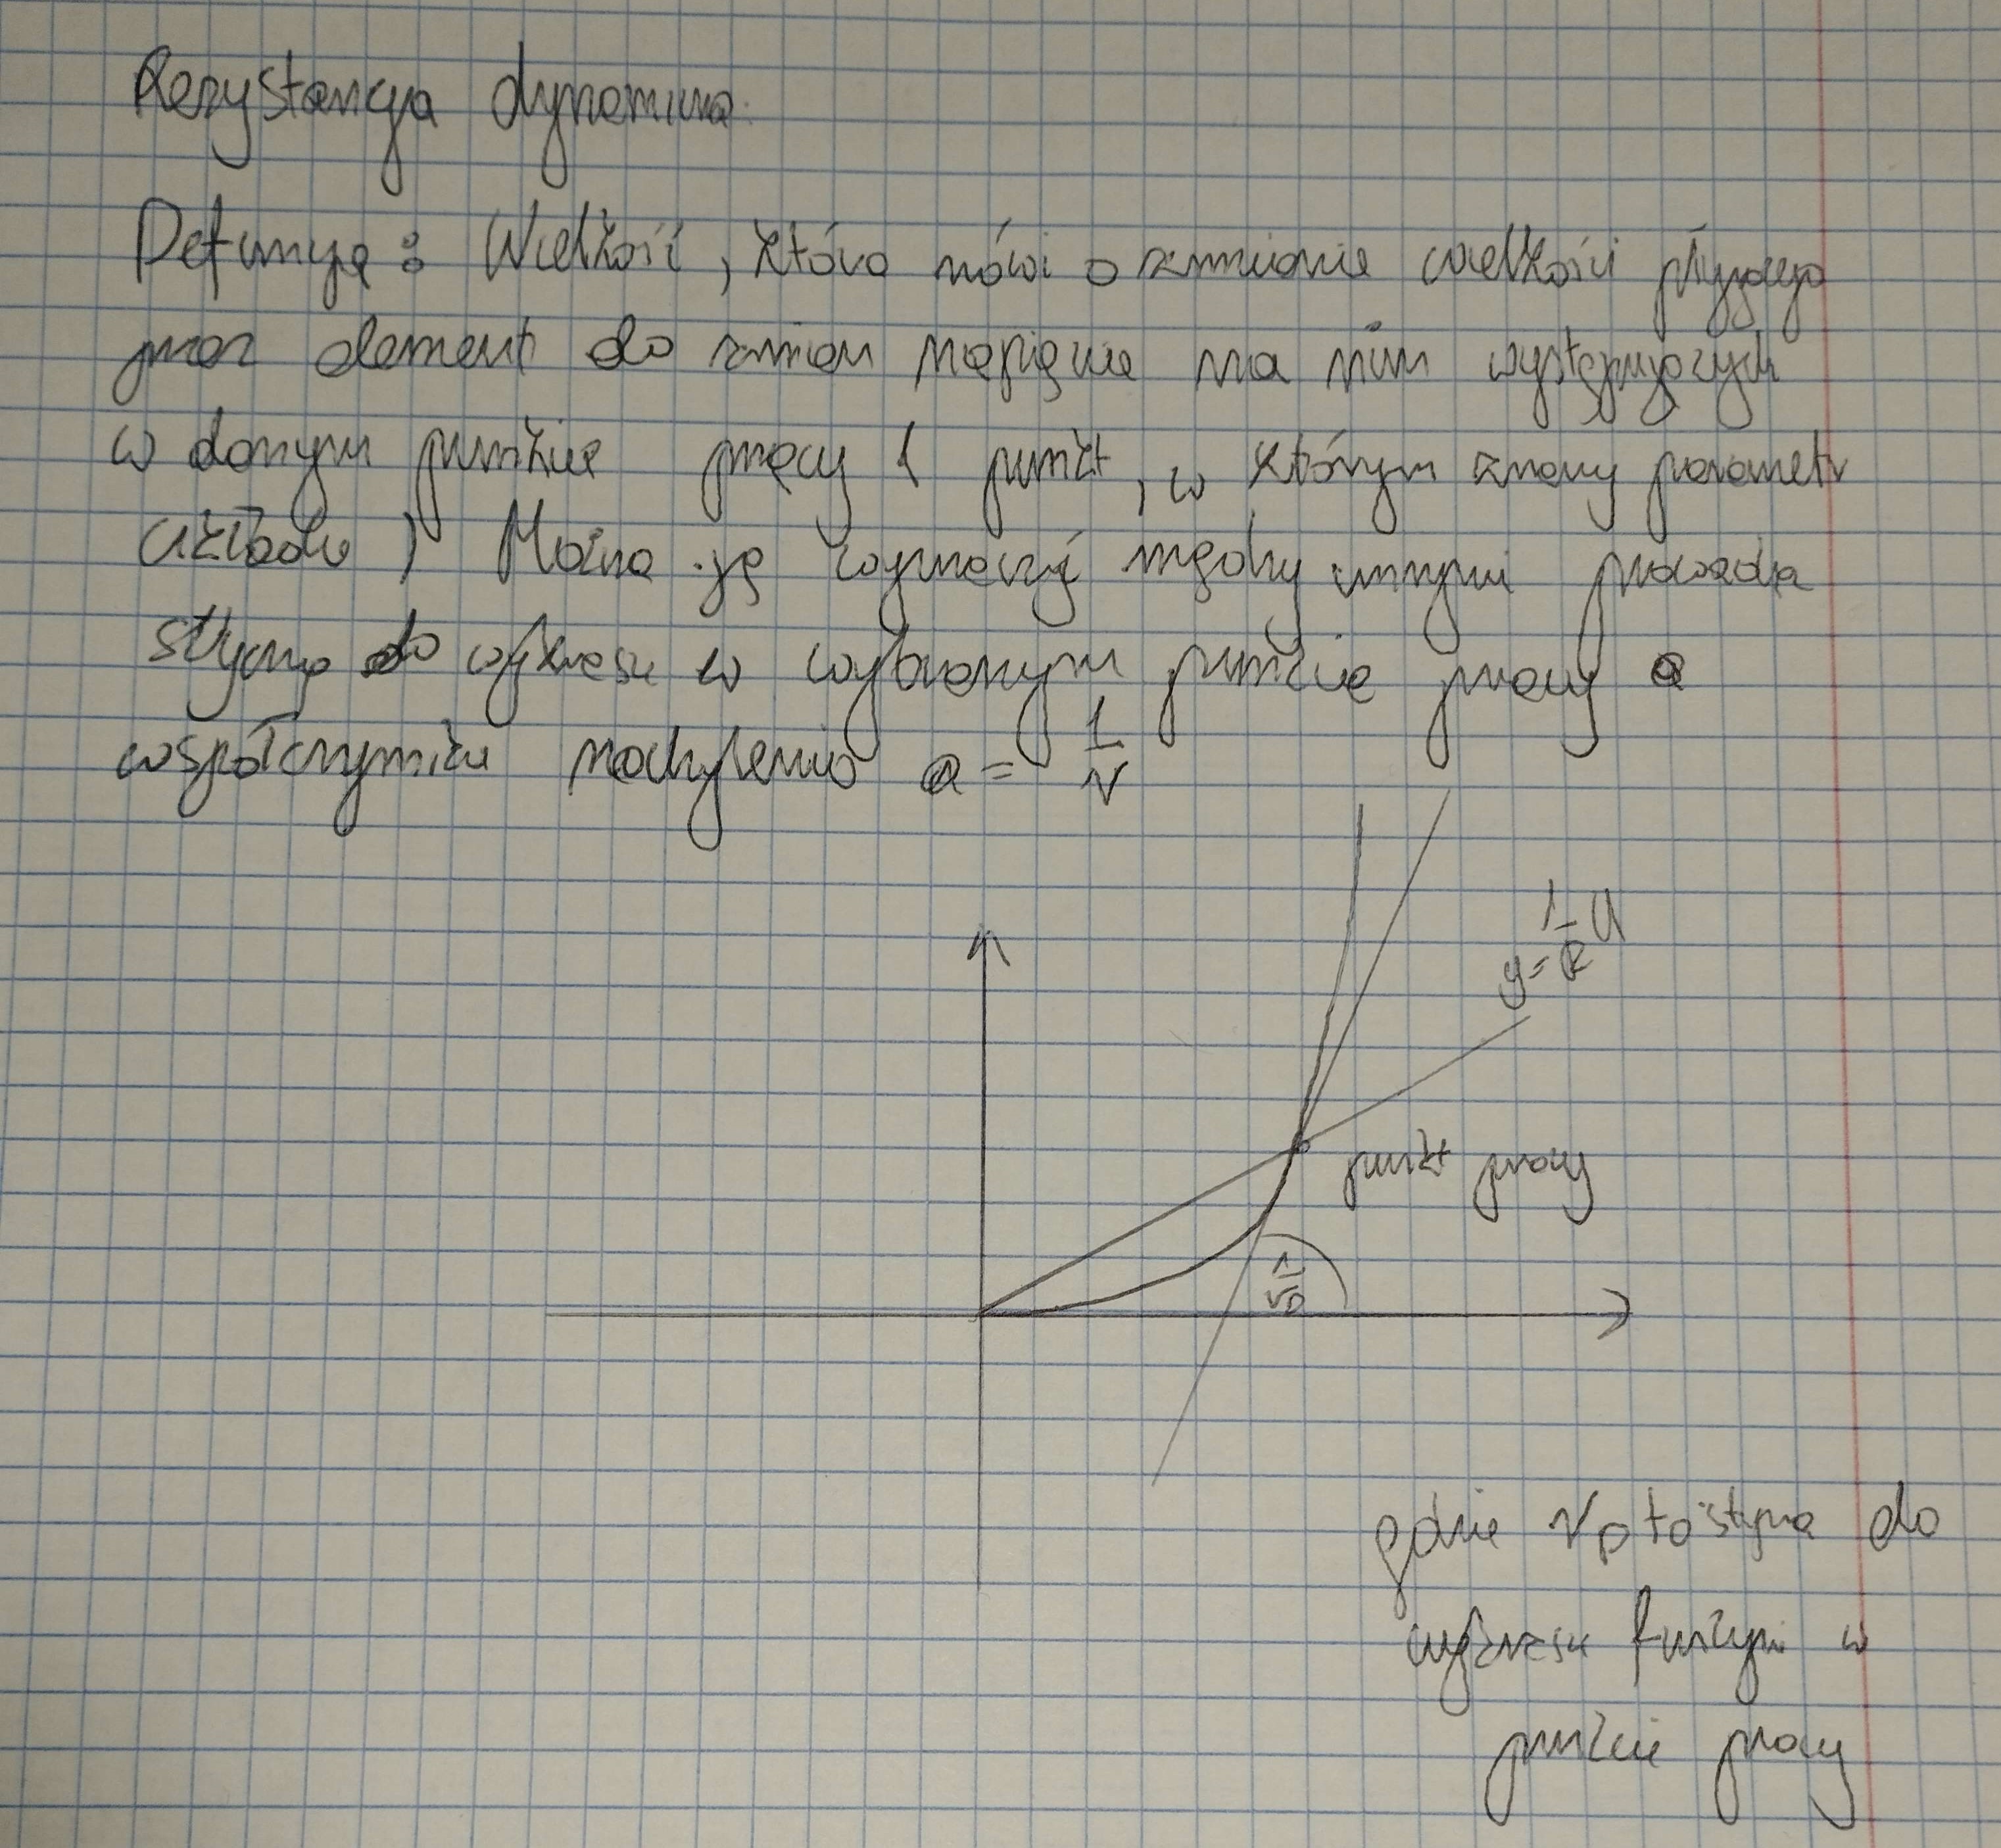 Rezystancja dynamiczna
Definicja : Wielkość, która mówi o zmianie wielkości płynącego
przez element do zmian napięcia na nim występujących
w danym punkcie pracy ( punkt, w którym znamy parametr
układu ) Można ją wyznaczyć między innymi prowadza
styczną do wykresu w wybranym punkcie pracy o
współczynniku nachylenia a = 1/r
y = 1/R U
punkt pracy
1/rD
gdzie rD to styczna do
wykresu funkcji w
punkcie pracy